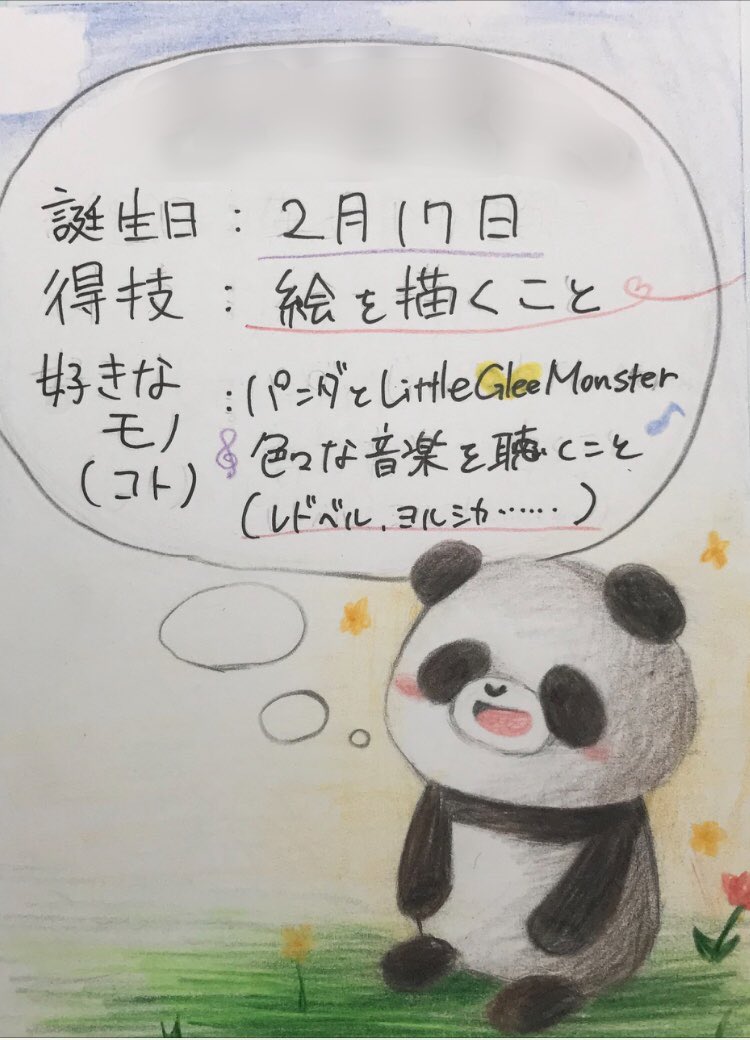 誕生日：2月17日
得技：絵を描くこと
好きな：パンダとLittle Glee Monster
モノ 色々な音楽を聴くこと
(コト) (レドベル、ヨルシカ……)